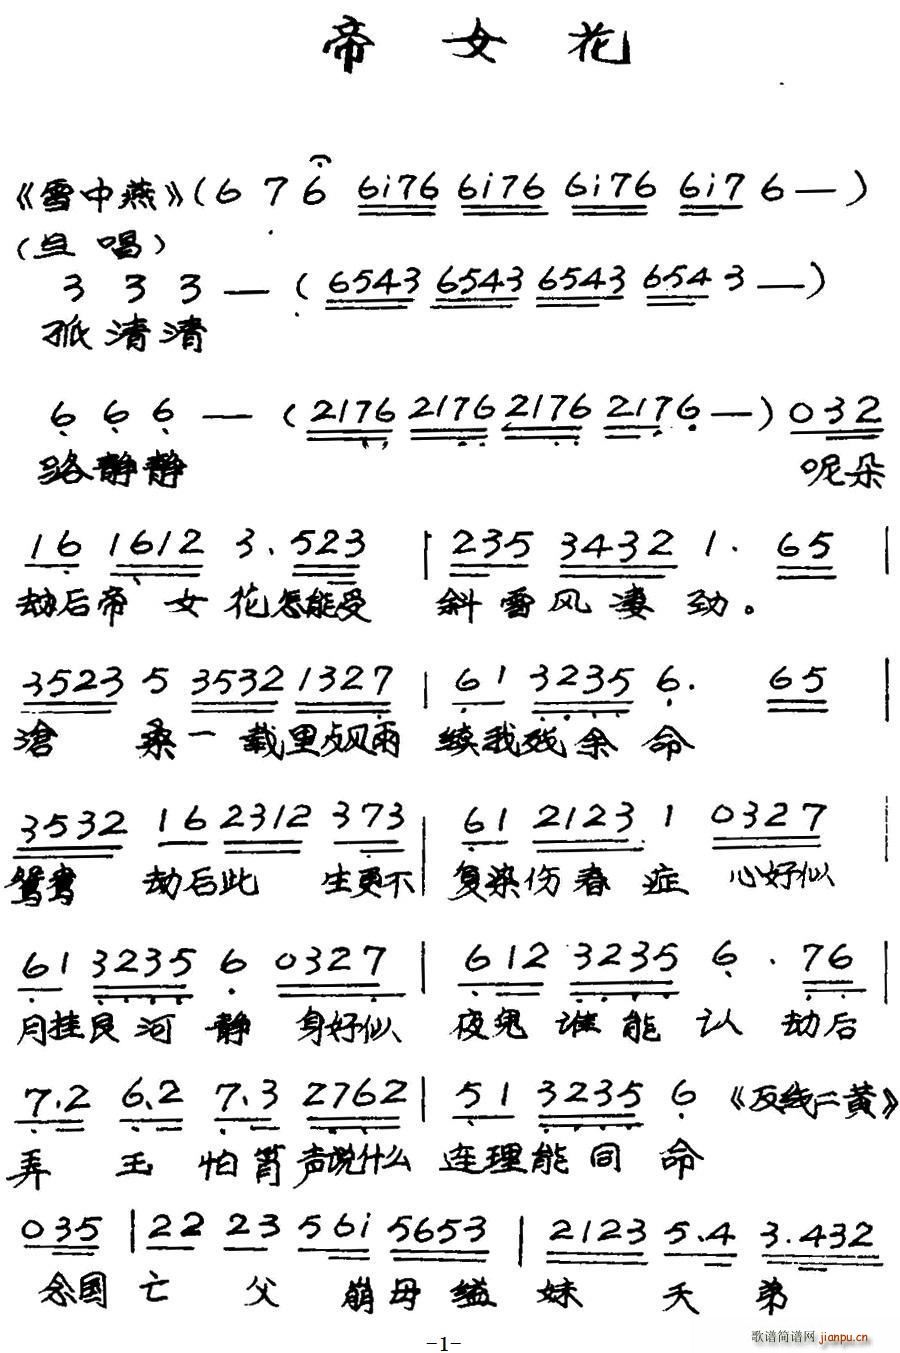 帝 女 花
《雪中燕》(6 7 6 6i76 6i76 6i76 6i7 6 —)
(旦 唱)
3 3 3 — (6543 6543 6543 654 3 —)
孤 清 清
6 6 6 — (2176 2176 2176 2176 —) 032
路 静 静 呢朵
16 1612 3. 523 | 235 3432 1. 65 |
劫后帝 女 花怎能受 斜雪风凄劲。
3523 5 3532 1327 | 61 3235 6. 65 |
沧 桑一 载里风雨 续我残余命
3532 16 2312 373 | 61 2123 1 0327 |
鸳鸯 劫后此 生更不 复染伤春症 心好似
61 3235 6 0327 | 612 3235 6. 76 |
月挂良河静 身好似 夜鬼谁能认 劫后
7.2 6.2 7.3 2762 | 51 3235 6 《反线二黄》
弄 玉 怕箫声说什么 连理能同命
035 | 22 23 56i 5653 | 2123 5.4 3.432
念国 亡 父 崩母缢 妹 夭 弟
-1-
歌谱简谱网 jianpu.cn